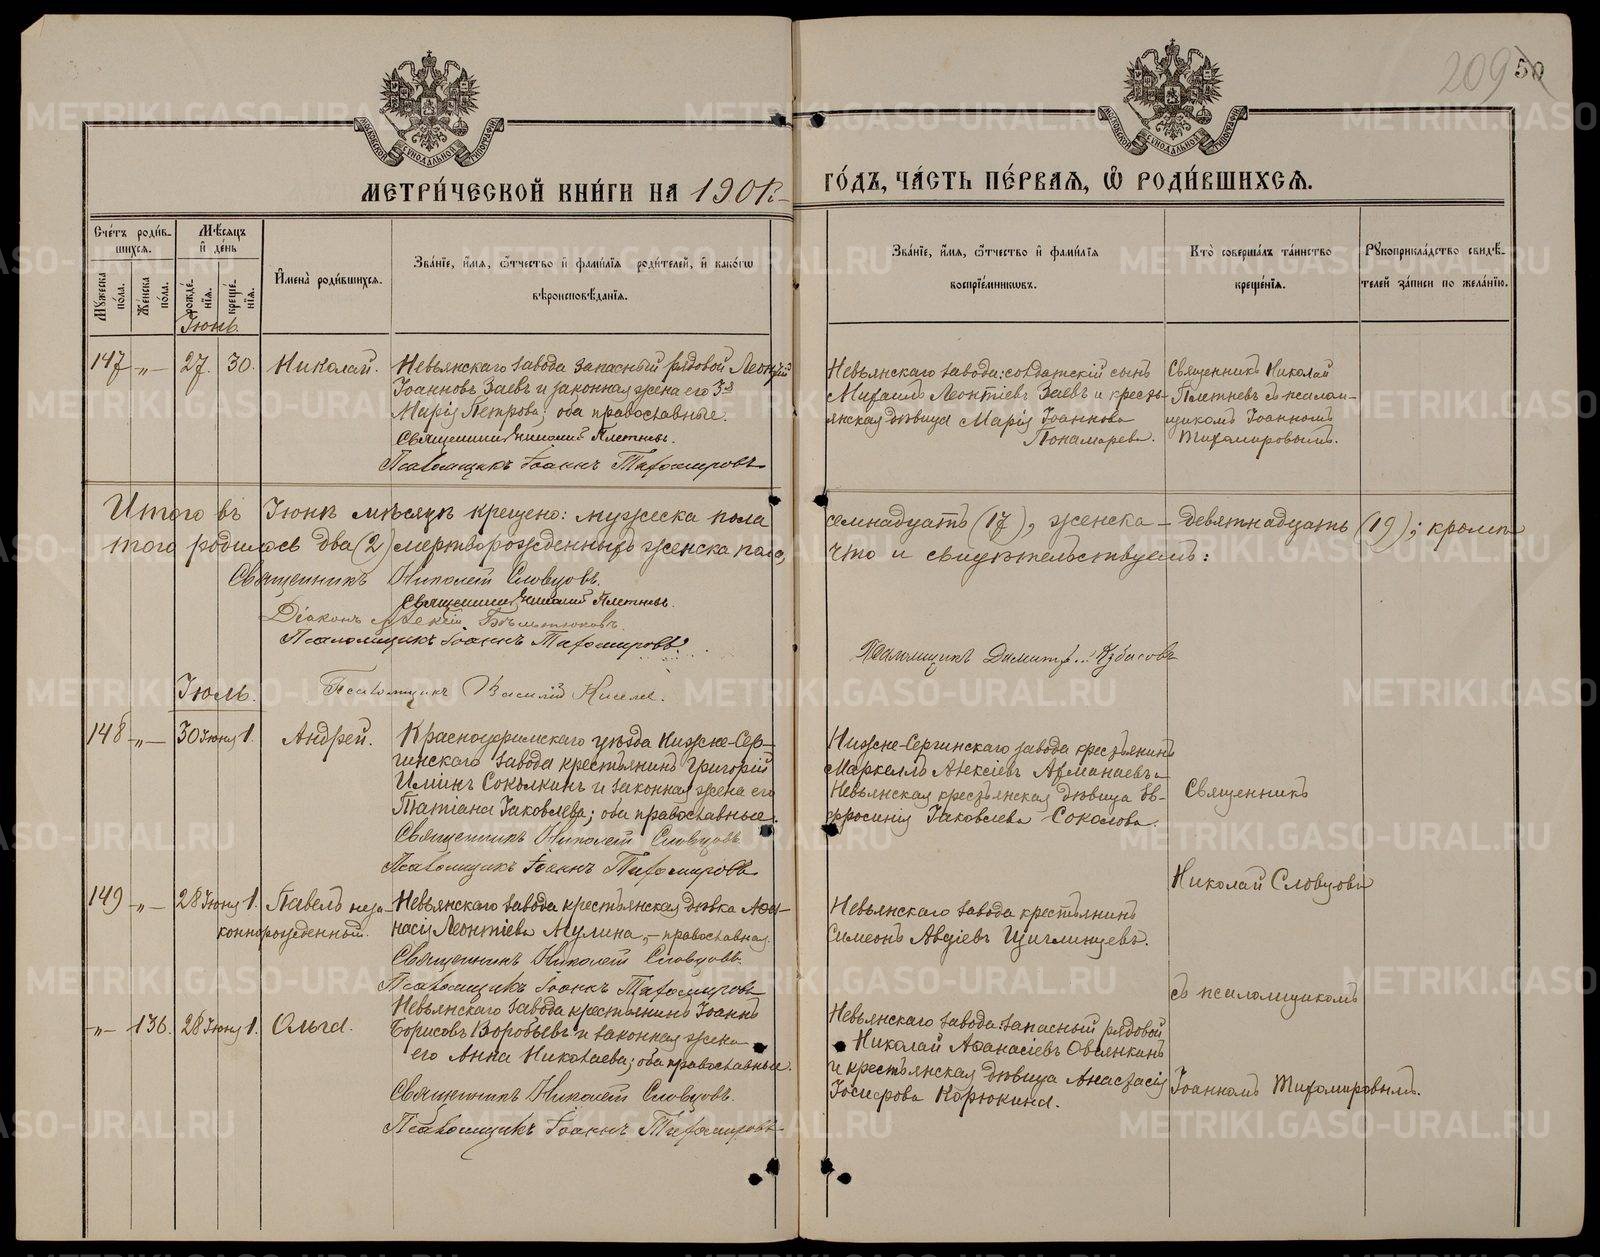 209 50
МОСКОВСКОЙ СУНОДАЛЬНОЙ ТИПОГРАФИИ
МОСКОВСКОЙ СУНОДАЛЬНОЙ ТИПОГРАФИИ
МЕТРИ́ЧЕСКОЙ КНИ́ГИ НА 1901 ГО́ДЪ, ЧА́СТЬ ПЕ́РВАѦ, Ѽ РОДИ́ВШИХСѦ.
Сче́тъ роди́в-
шихсѧ.
Мꙋ́жеска по́ла.
Же́нска по́ла.
Мѣ́сѧцъ и҆ де́нь
рожде́-
нїѧ.
креще́-
нїѧ.
И҆мена̀ роди́вшихсѧ.
Зва́нїе, и҆́мѧ, ѻ҆́тчество и҆ фами́лїѧ роди́телей, и҆ како́гѡ
вѣроисповѣ́данїѧ.
Зва́нїе, и҆́мѧ, ѻ҆́тчество и҆ фами́лїѧ
воспрїе́мникѡвъ.
Кто̀ соверша́лъ та́инство
креще́нїѧ.
Рꙋкоприкла́дство свидѣ́-
телей за́писи по жела́нїю.
Іюнь.
147 -„- 27. 30. Николай.
Невьянскаго завода запасный рядовой Леонтій
Іоанновъ Заевъ и законная жена его
Марія Петрова; оба православные.
Священникъ Николай Плетневъ.
Псаломщикъ Іоаннъ Тихомировъ
Невьянскаго завода: солдатскій сынъ
Михаилъ Леонтіевъ Заевъ и кресть-
янская дѣвица Марія Іоаннова
Пономарева.
Священникъ Николай
Плетневъ съ псалом-
щикомъ Іоанномъ
Тихомировымъ.
Итого въ Іюнѣ мѣсяцѣ крещено: мужеска пола семнадцать (17), женска – девятнадцать (19); кромѣ
того родилось два (2) мертворожденныхъ женска пола, что и свидѣтельствуемъ:
Священникъ Николай Словцовъ.
Священникъ Николай Плетневъ.
Діаконъ
Псаломщикъ Іоаннъ Тихомировъ.
Псаломщикъ
Псаломщикъ Василій
Іюль.
148 -„- 30 Іюня 1. Андрей.
Красноуфимскаго уѣзда Нижне-Сер-
гинскаго завода крестьянинъ Григорій
Соколкинъ и законная жена его
Татіана Іаковлева; оба православные.
Священникъ Николай Словцовъ.
Псаломщикъ Іоаннъ Тихомировъ
Нижне-Сергинскаго завода крестьянинъ
Маркеллъ Алексіевъ и
Невьянская крестьянская дѣвица Ев-
фросинія Іаковлева Соколова.
Священникъ
149 -„- 28 Іюня 1. Павелъ неза-
коннорожденный.
Невьянскаго завода крестьянская дѣвка Афа-
насія Леонтіева – православная.
Священникъ Николай Словцовъ.
Псаломщикъ Іоаннъ Тихомировъ
Невьянскаго завода крестьянинъ
Симеонъ Авдіевъ
Николай Словцовъ
съ псаломщикомъ
-„- 136. 28 Іюня 1. Ольга.
Невьянскаго завода крестьянинъ Іоаннъ
Борисовъ Воробьевъ и законная жена
его Анна Николаева; оба православные.
Священникъ Николай Словцовъ.
Псаломщикъ Іоаннъ Тихомировъ
Невьянскаго завода: запасный рядовой
Николай Афанасіевъ Овсянкинъ
и крестьянская дѣвица Анастасія
Іосифова Корюкина.
Іоанномъ Тихомировымъ.
METRIKI.GASO-URAL.RU